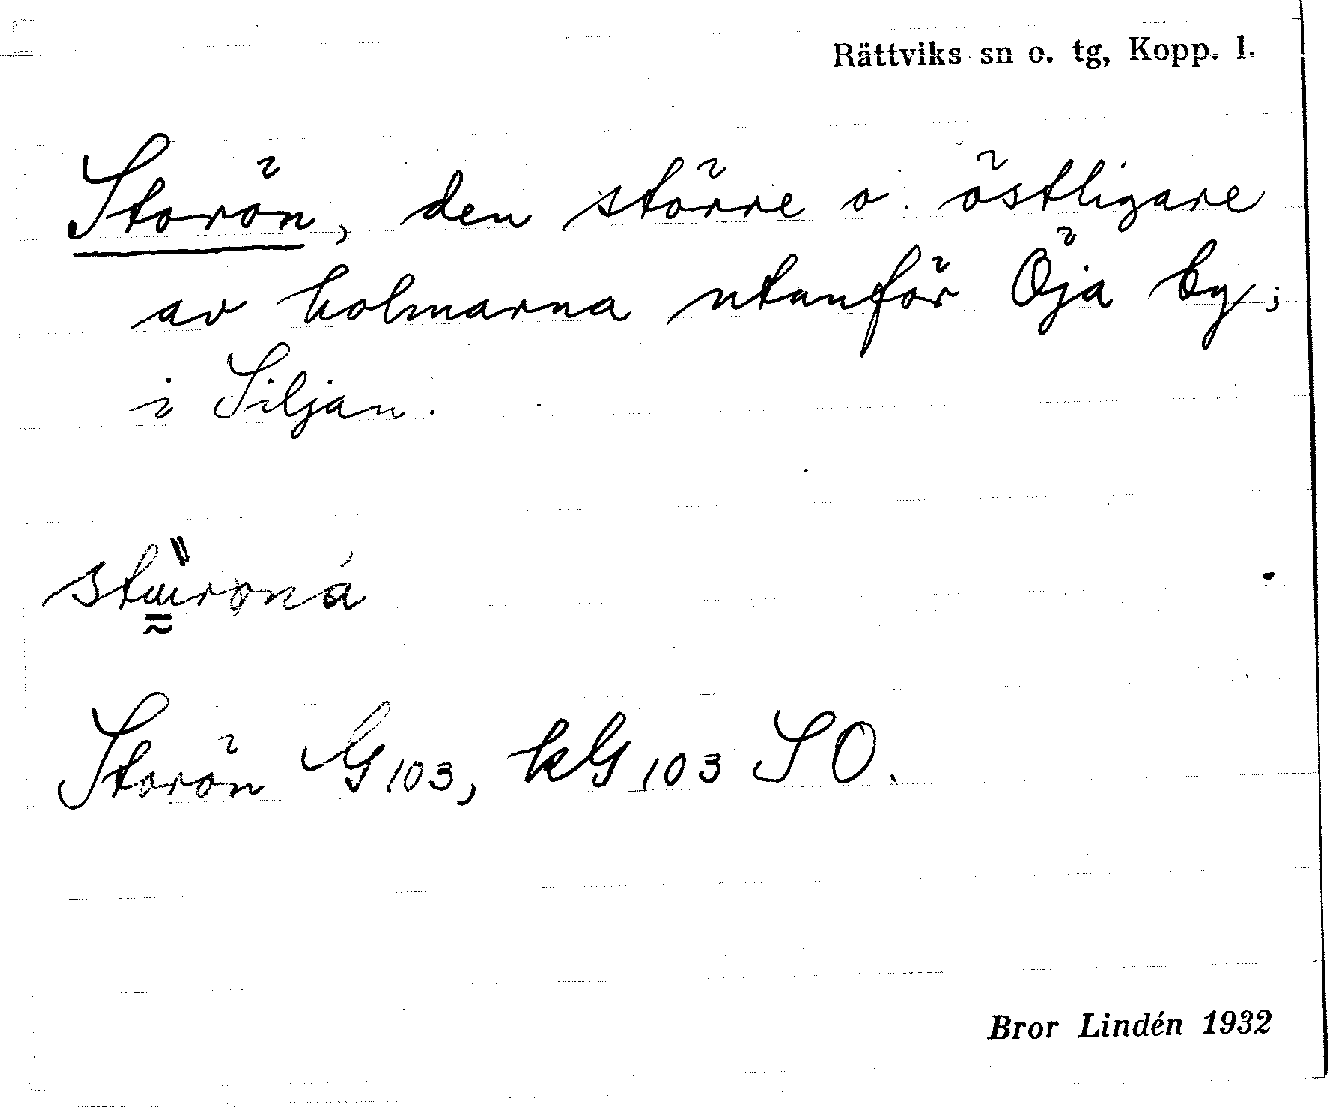 Rättviks sn o. tg, Kopp. l.
Storön, den större o. östligare
av holmarna utanför Öja by;
i Siljan.
Storön G103, kG103 SO.
Bror Lindén 1932